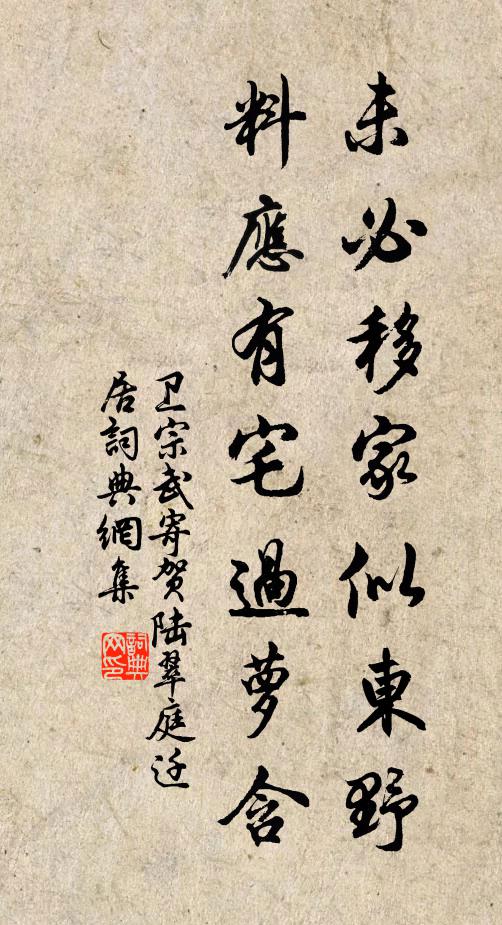 未必移家似東野
料應有宅過萝含
卫宗武寄贺陆翠庭迁
居詞典網集
詞典网印